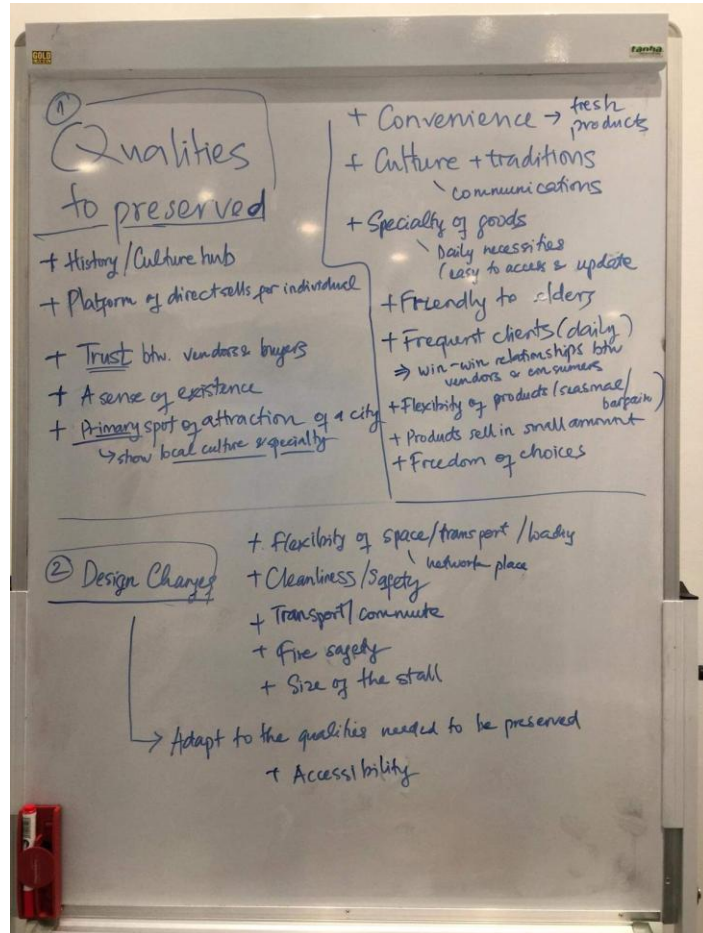 GOLD
tanha
①
Qualities
to preserved
+ History/Culture hub
+ Platform of direct sells for individual
+ Trust btw. vendors & buyers
+ A sense of existence
+ Primary spot of attraction of a city
↳ show local culture & specialty
+ Convenience → fresh
products
+ Culture + traditions
\ communications
+ Specialty of goods
\ Daily necessities
(easy to access & update
+ Friendly to elders
+ Frequent clients (daily)
⇒ win-win relationships btw
vendors & consumers
+ Flexibility of products (seasonal/
bargain)
+ Products sell in small amount
+ Freedom of choices
② Design Changes
+ Flexibility of space/transport/
\ network place
+ Cleanliness/Safety
+ Transport/commute
+ Fire safety
+ Size of the stall
→ Adapt to the qualities needed to be preserved
+ Accessibility